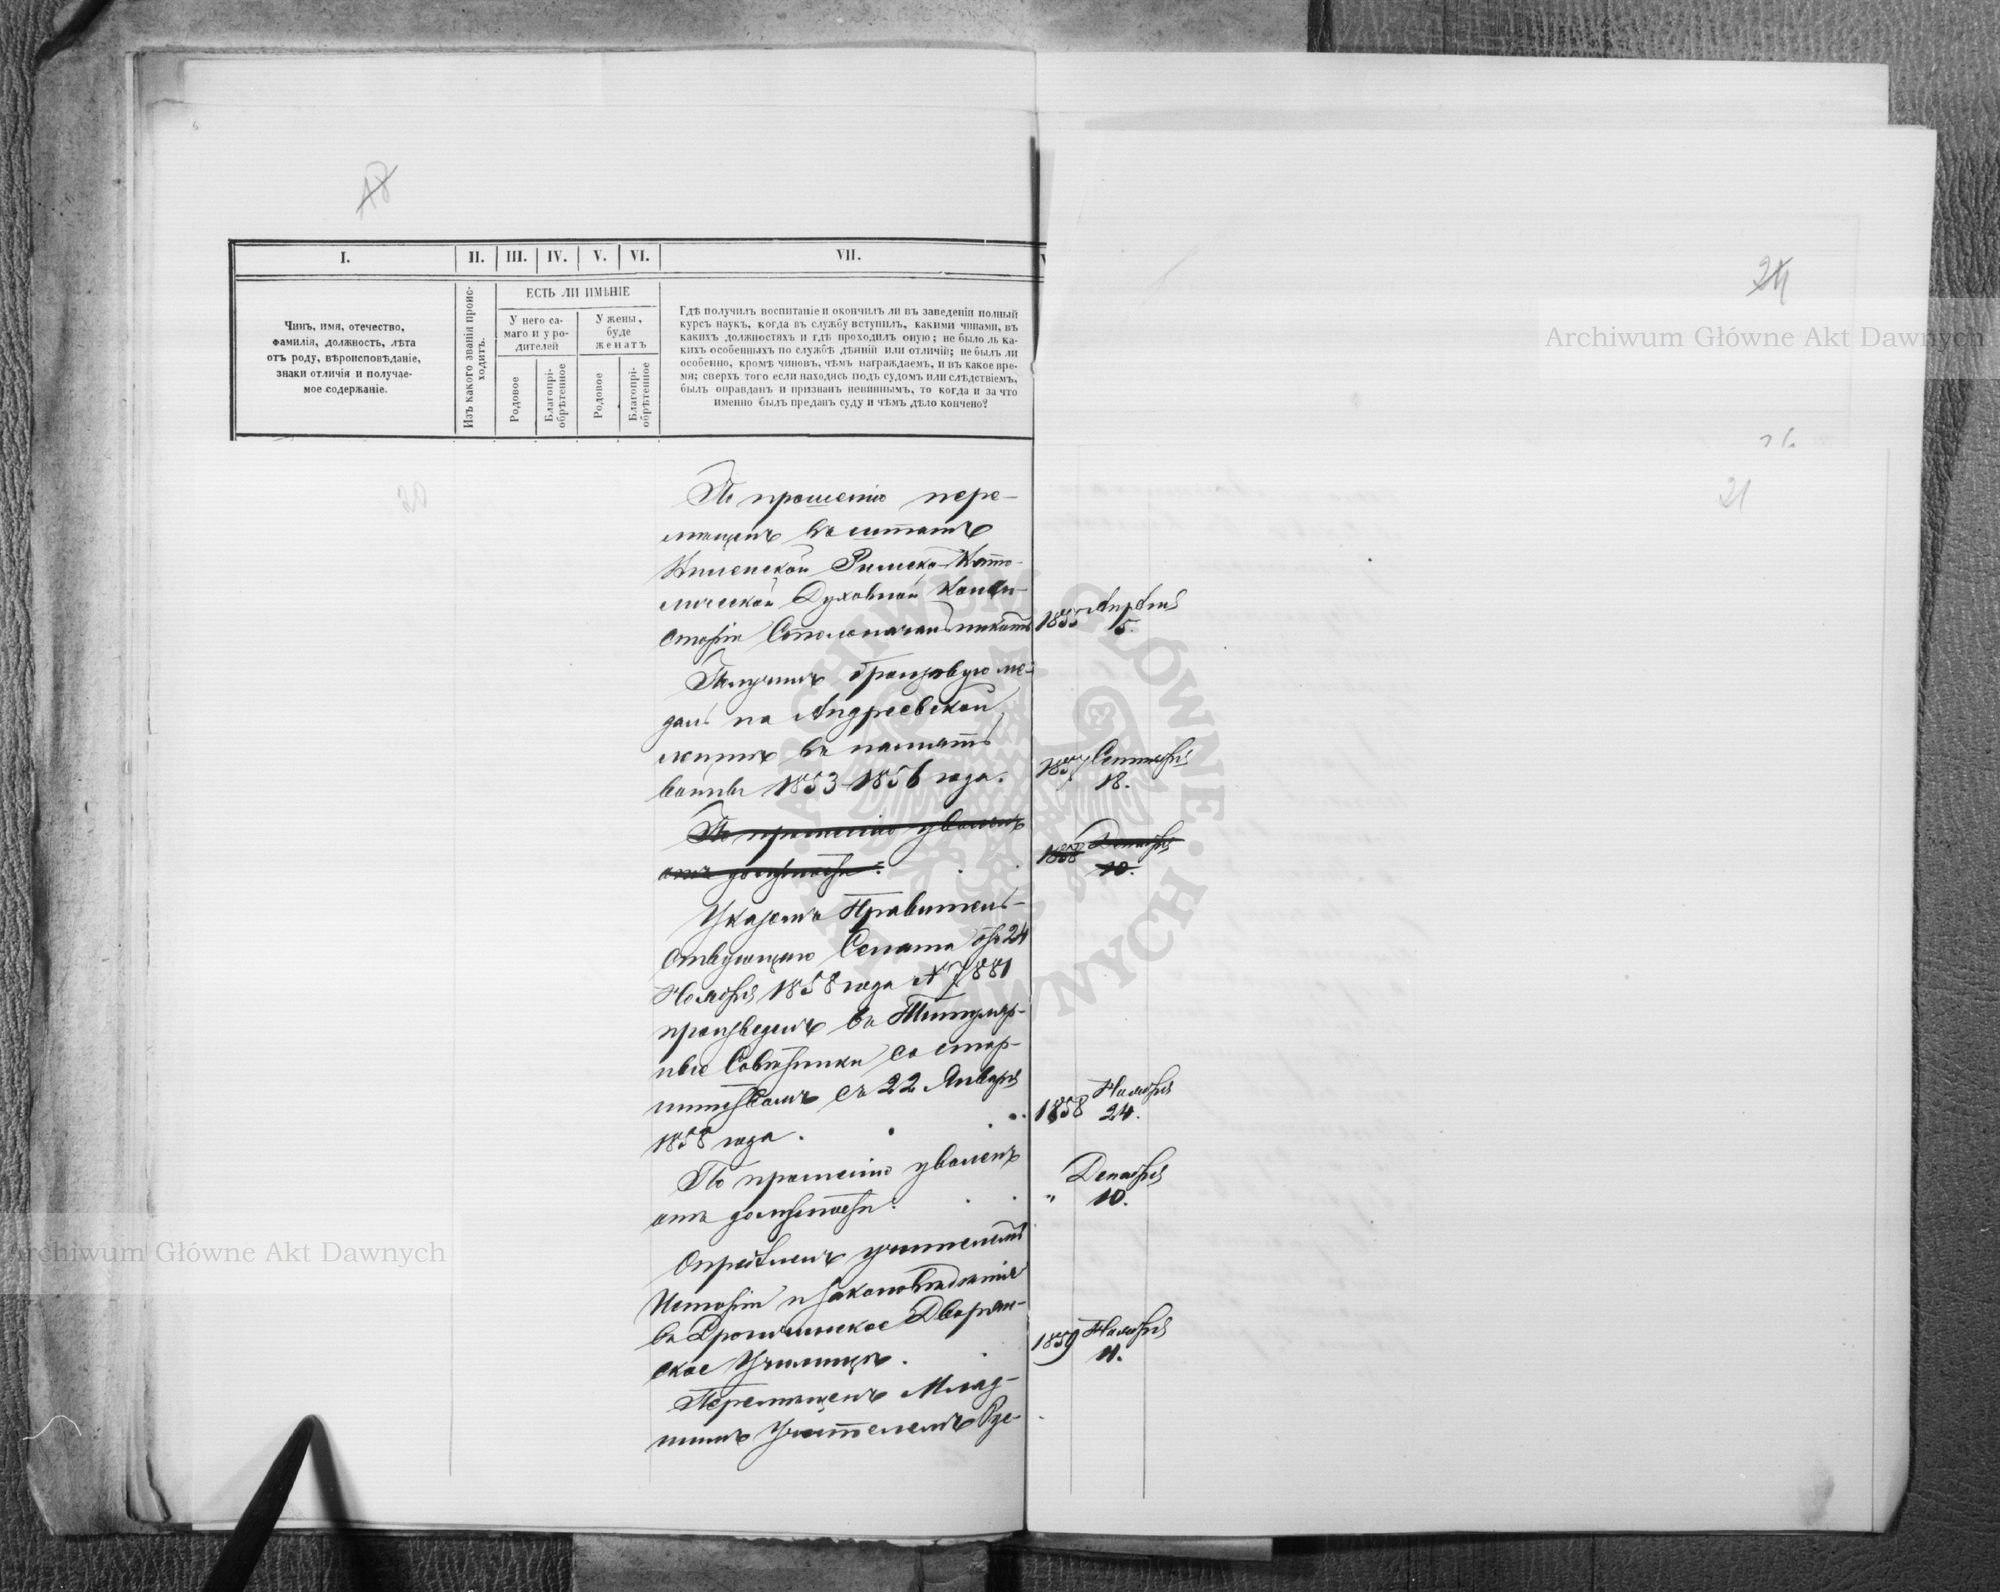 18
I.
II.
III.
IV.
V.
VI.
VII.
Чинъ, имя, отечество,
фамилія, должность, лѣта
отъ роду, вѣроисповѣданіе,
знаки отличія и получае-
мое содержаніе.
Изъ какого званія проис-
ходитъ.
ЕСТЬ ЛИ ИМѢНІЕ
У него са-
маго и у ро-
дителей
У жены,
буде
женатъ
Родовое
Благопрі-
обрѣтенное
Родовое
Благопрі-
обрѣтенное
Гдѣ получилъ воспитаніе и окончилъ ли въ заведеніи полный
курсъ наукъ, когда въ службу вступилъ, какими чинами, въ
какихъ должностяхъ и гдѣ проходилъ оную; не было ль ка-
кихъ особенныхъ по службѣ дѣяній или отличій; не былъ ли
особенно, кромѣ чиновъ, чѣмъ награждаемъ, и въ какое вре-
мя; сверхъ того если находясь подъ судомъ или слѣдствіемъ,
былъ оправданъ и признанъ невиннымъ, то когда и за что
именно былъ преданъ суду и чѣмъ дѣло кончено?
20
По прошенію пере-
мѣщенъ въ штатъ
Виленской Римско-Като-
лической Духовной Конси-
сторіи Столоначальникомъ 1855 Апрѣля 5.
Получилъ бронзовую ме-
даль на Андреевской
лентѣ въ память
войны 1853-1856 года. 1857 Сентября 18.
По прошенію уволенъ
отъ должности. 1858 Декабря 10.
Указомъ Правитель-
ствующаго Сената отъ 24
Ноября 1858 года № 7881
произведенъ въ Титуляр-
ные Совѣтники со стар-
шинствомъ съ 22 Января
1858 года. 1858 Ноября 24.
По прошенію уволенъ
отъ должности. " Декабря 10.
Опредѣленъ учителемъ
Исторіи и Законовѣденія
въ Дрогичинское Дворян-
ское Училище. 1859 Ноября 11.
Перемѣщенъ Млад-
шимъ Учителемъ
24
21
Archiwum Główne Akt Dawnych
Archiwum Główne Akt Dawnych
ARCHIWUM GŁÓWNE AKT DAWNYCH